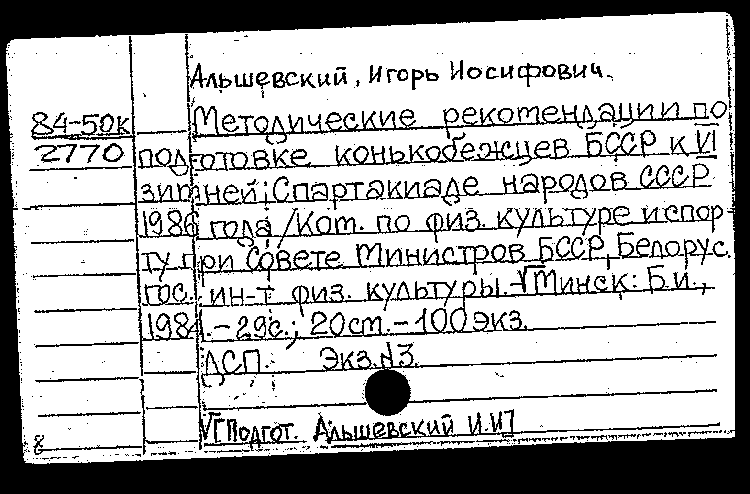 Альшевский, Игорь Иосифович.
84-50к Методические рекомендации по
2770 подготовке конькобежцев БССР к VI
зимней Спартакиаде народов СССР
1986 года /Ком. по физ. культуре и спор-
ту при Совете Министров БССР, Белорус.
гос. ин-т физ. культуры.-√Минск: Б.и.,
1984.-29с.; 20см.-100экз.
ДСП. Экз.№3.
√[Подгот. Альшевский И.И]
8